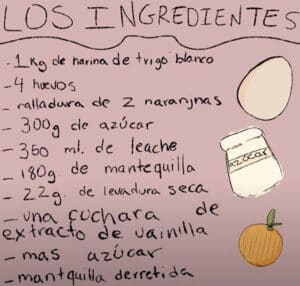 LOS INGREDIENTES
- 1 Kg de harina de trigo blanco
- 4 huevos
- ralladura de 2 naranjnas
- 300g de azúcar
- 350 ml. de leache
- 180g. de mantequilla
- 22g. de levadura seca
- una cuchara de
extracto de vainilla
- mas azúcar
- mantquilla derretida
AZÚCAR